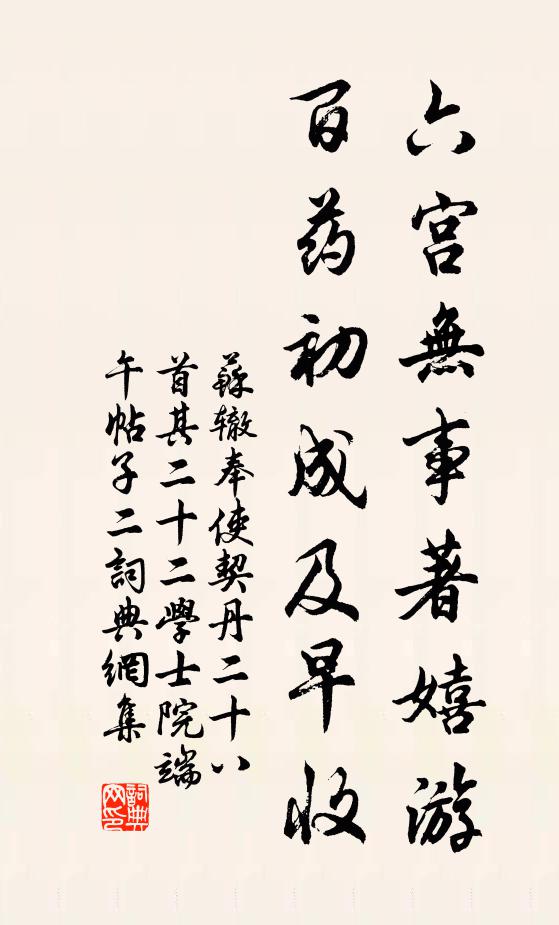 六宫無事著嬉游
百药初成及早收
蘇辙奉使契丹二十八
首其二十二學士院端
午帖子二詞典網集
詞典网印